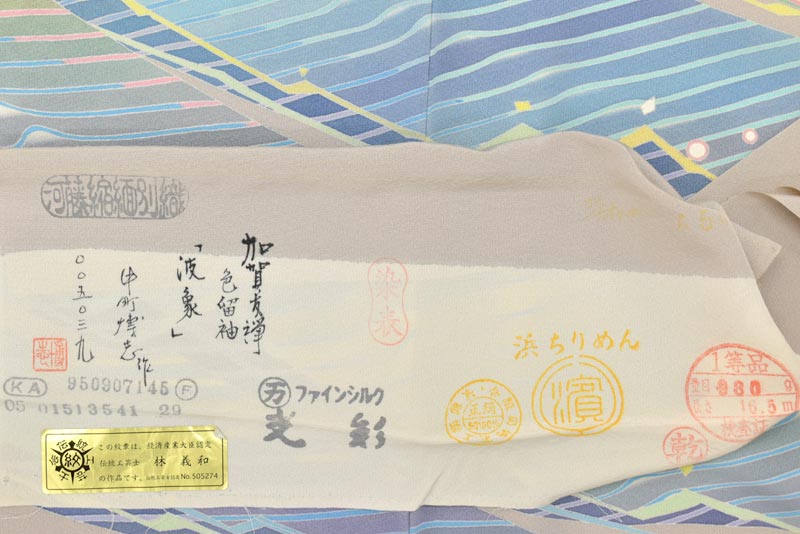 河藤縮緬別織
加賀友禅
色留袖
「波象」
中町博志作
〇〇五〇三九
染表
浜ちりめん
濱
1等品
930g
16.5m
検査証
乾
正絹
KA 950907145 F
05 01513541 29
万 ファインシルク
光彩
この紋章は、経済産業大臣認定
伝統工芸士 林 義和
の作品です。 No.505274